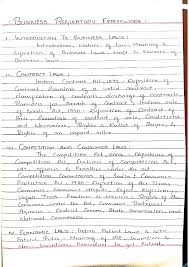 BUSINESS REGULATORY FRAMEWORK:
I. INTRODUCTION TO BUSINESS LAWS:
Introduction, Nature of Laws, Meaning &
Definition of Business Laws, Scope & Sources of
Business Laws
II CONTRACT LAWS:
Indian Contract Act, 1872, Definition of
Contract, Essentials of a valid contract,
Classification of contracts, Discharge of Contracts,
Remedies for Breach of Contract, Indian Sale
of Goods Act, 1930, Definition of contract of
Sale, Essentials of contract of sale, Conditions
and Warranties, Rights & Duties of Buyer,
Rights of an unpaid seller
III COMPETITION AND CONSUMER LAWS:
The Competition Act, 2002, Objectives of
Competition Act, Features of Competition
Act, Offences & Penalties under the Act,
Competition Commission of India; Consumer
Protection Act, 1986, Definition of the Terms
Consumer,
Unfair Trade Practices, Rights of the
Consumer under the Act, Consumer Redressal
Agencies, District Forum, State Commission and
National Commission
IV. ECONOMIC LAWS: Indian Patent Laws &
Patent Rules, Meaning of Invention &